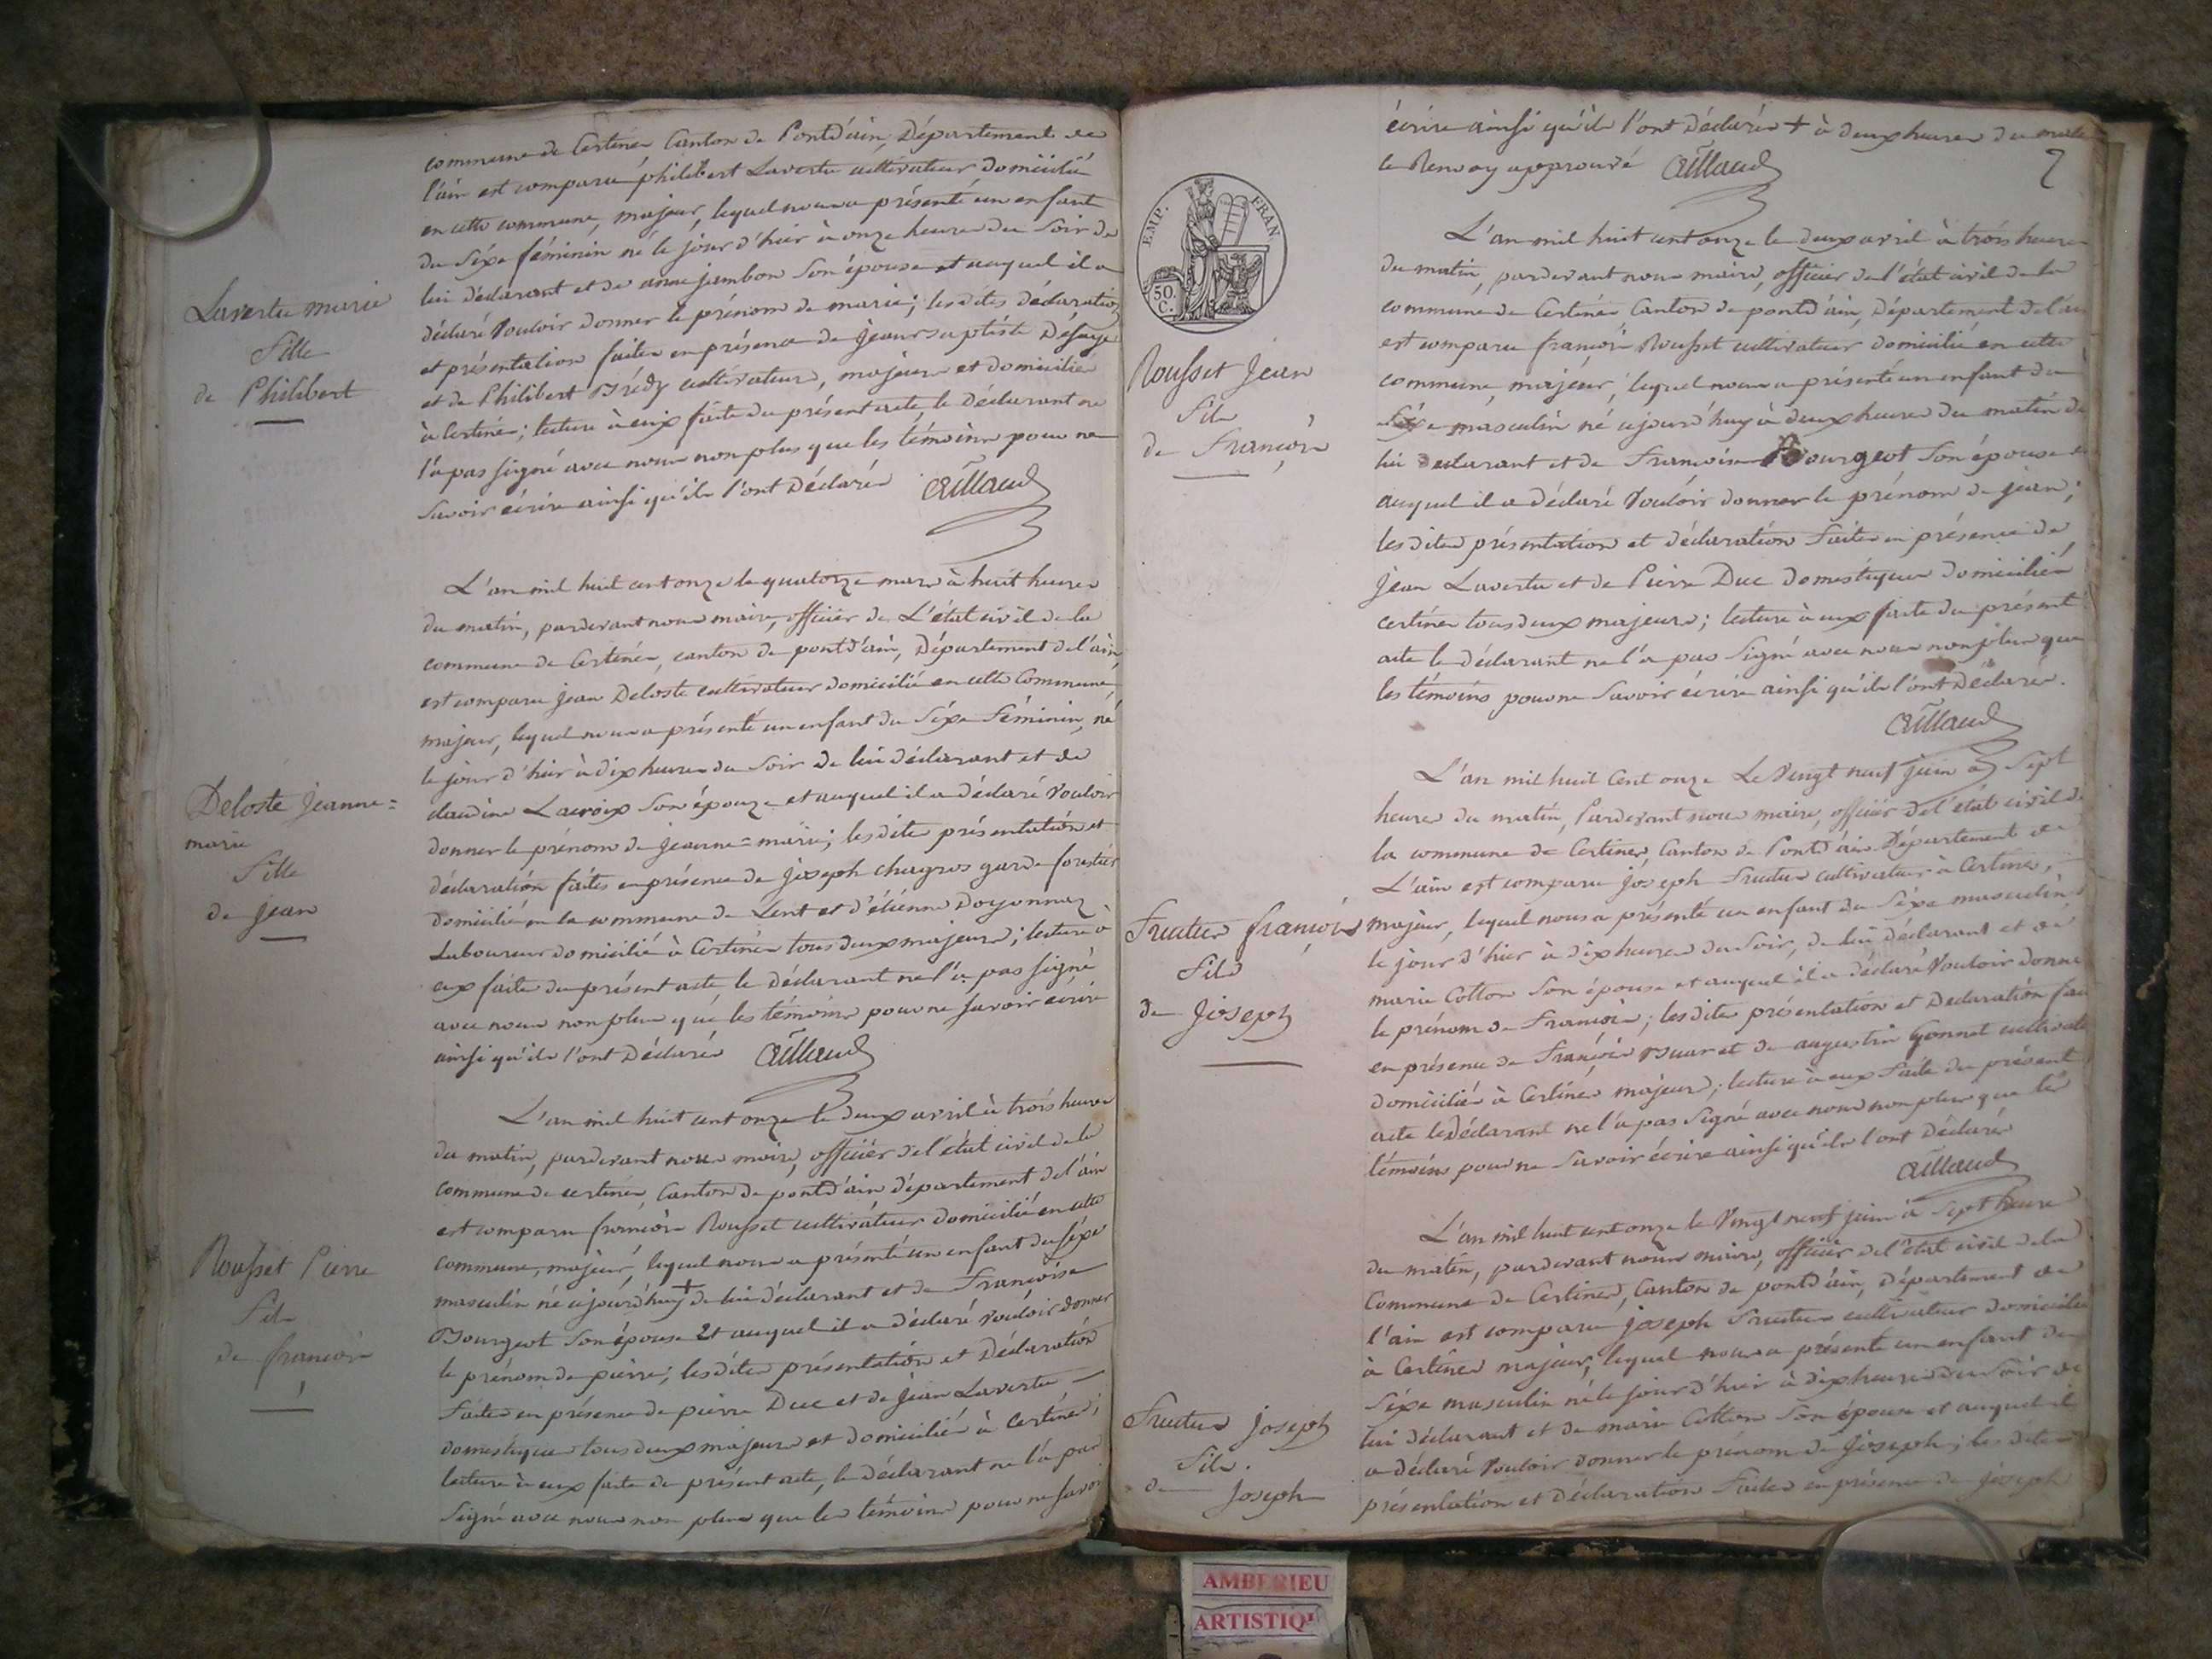 commune de Certines Canton de Pontd'ain, Département de
l'ain est comparu philibert Lavertu cultivateur domicilié
en cette commune, majeur, lequel nous a présenté un enfant
du Séxe féminin né le jour d'hier à onze heures du Soir de
lui déclarant et de anne jambon Son épouse et auquel il a
déclaré Vouloir donner le prénom de marie; les dites déclaration
et présentation faites en présence de jean baptiste
et de Philibert cultivateurs, majeurs et domiciliés
à Certines; lecture à eux faite du présent acte, le Déclarant ne
l'a pas signé avec nous non plus que les témoins pour ne
Savoir écrire ainsi qu'ils l'ont Déclaré
Lavertu marie
fille
de Philibert
L'an mil huit cent onze le quatorze mars à huit heures
du matin, pardevant nous maire, officier de L'état civil de la
commune de Certines, canton de pontd'ain, Département de l'ain,
est comparu jean Deloste cultivateur domicilié en cette Commune
majeur, lequel nous a présenté un enfant du Séxe féminin, né
le jour d'hier à dix heures du Soir de lui déclarant et de
claudine Lacroix Son épouze et auquel il a déclaré Vouloir
donner le prénom de jeanne=marie; les dites présentation et
déclaration faites en présence de joseph chagros garde forestier
domicilié en la commune de Lent et d'étienne Doyonnaz
Laboureur domicilié à Certines tous deux majeurs; lecture à
eux faite du présent acte, le déclarant ne l'a pas signé
avec nous non plus que les témoins pour ne savoir écrire
ainsi qu'ils l'ont Déclaré
Deloste jeanne=
marie
fille
de jean
L'an mil huit cent onze le deux avril à trois heures
du matin, pardevant nous maire, officier de l'état civil de la
commune de certines Canton de pontd'ain département de l'ain
est comparu françois Rousset cultivateur domicilié en cette
commune, majeur, lequel nous a présenté un enfant du séxe
masculin né ajourd'huy + de lui déclarant et de Françoise
Bourgeot Son épouse Et auquel il a déclaré vouloir donner
le prénom de pierre; les dites présentation et Déclaration
faites en présence de pierre Duc et de jean Lavertu
domestiques tous deux majeurs et domiciliés à Certines;
lecture à eux faite du présent acte, le déclarant ne l'a pas
signé avec nous non plus que les témoins pour ne savoir
Rousset Pierre
fils
de françois
écrire ainsi qu'ils l'ont Déclaré + à deux heures du matin
le Renvoy approuvé
EMP. FRAN
50. C.
L'an mil huit cent onze le deux avril à trois heures
du matin, pardevant nous maire, officier de l'état civil de la
commune de Certines Canton de pontd'ain, Département de l'ain
est comparu françois Rousset cultivateur domicilié en cette
commune, majeur, lequel nous a présenté un enfant du
Séxe masculin né ajourd'huy à deux heures du matin de
lui declarant et de Françoise Bourgeot Son épouse et
auquel il a déclaré Vouloir donner le prénom de jean;
les dites présentation et déclaration faites en présence de
jean Lavertu et de Pierre Duc domestiques domiciliés
certines tous deux majeurs; lecture à eux faite du présent
acte le déclarant ne l'a pas Signé avec nous non plus que
les témoins pour ne Savoir écrire ainsi qu'ils l'ont Déclaré.
Rousset Jean
fils
de François
L'an mil huit Cent onze Le Vingt neuf juin à Sept
heures du matin, Pardevant nous maire, officier de l'état civil de
la commune de Certines, Canton de Pontd'ain Département de
L'ain est comparu joseph Fructus cultivateur à Certines,
majeur, lequel nous a présenté un enfant du Séxe masculin
le jour d'hier à dix heures du Soir, de lui déclarant et de
marie Cotton Son épouse et auquel il a déclaré Vouloir donner
le prénom de François; les dites présentation et Declaration
en présence de François et de augustin Gonnet
domiciliés à Certines majeurs; lecture à eux faite du présent
acte le déclarant ne l'a pas Signé avec nous non plus que les
témoins pour ne Savoir écrire ainsi qu'ils l'ont Déclaré
Fructus françois
fils
de joseph
L'an mil huit cent onze le Vingt neuf juin à Sept heures
du matin, pardevant nous maire, officier de l'état civil de la
Commune de Certines, Canton de pontd'ain, département de
l'ain est comparu joseph Fructus cultivateur domicilié
à Certines majeur, lequel nous a présenté un enfant du
Séxe masculin né le jour d'hier à dix heures du Soir de
lui déclarant et de marie Cotton Son épouse et auquel il
a déclaré Vouloir donner le prénom de joseph; les dites
présentation et Déclaration faites en présence de joseph
Fructus joseph
fils.
de joseph
AMBERIEU
ARTISTIQU